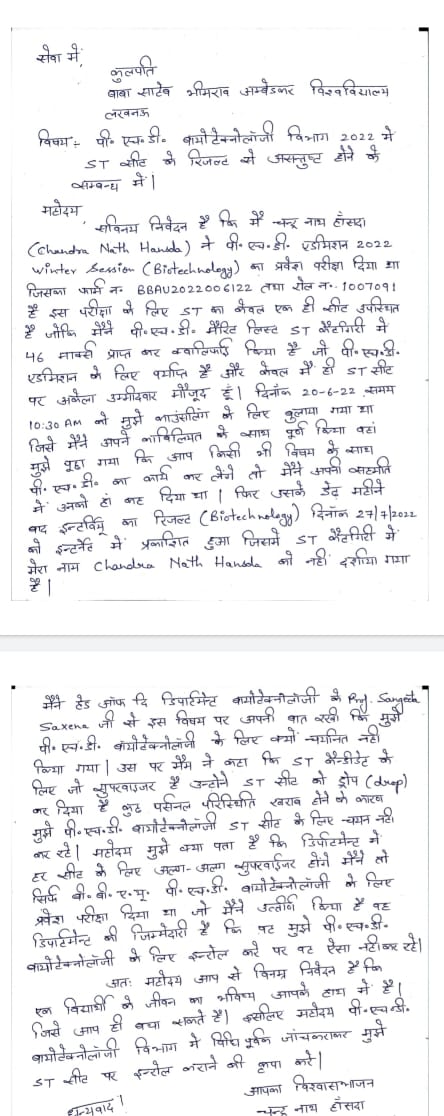 सेवा में,
कुलपति
बाबा साहेब भीमराव अम्बेडकर विश्वविद्यालय
लखनऊ
विषय:- पी० एच० डी० बायोटेक्नोलॉजी विभाग 2022 में
ST सीट के रिजल्ट से असन्तुष्ट होने के
सम्बन्ध में।
महोदय,
सविनय निवेदन है कि मैं चन्द्र नाथ हाँसदा
(Chandra Nath Hansda) ने पी० एच० डी० एडमिशन 2022
Winter Session (Biotechnology) का प्रवेश परीक्षा दिया था
जिसका फार्म न० BBAU2022006122 तथा रोल न०- 1007091
है इस परीक्षा के लिए ST का केवल एक ही सीट उपस्थित
है जोकि मैंने पी०एच०डी० मैरिट लिस्ट ST कैटगिरी में
46 मार्क्स प्राप्त कर क्वालिफाई किया है जो पी०एच०डी०
एडमिशन के लिए पर्याप्त है और केवल मैं ही ST सीट
पर अकेला उम्मीदवार मौजूद हूँ। दिनाँक 20-6-22 समय
10:30 AM को मुझे काउंसलिंग के लिए बुलाया गया था
जिसे मैंने अपने काबिलियत के साथ पूर्ण किया वहां
मुझे पूछा गया कि आप किसी भी विषय के साथ
पी० एच० डी० का कार्य कर लेंगे तो मैंने अपनी सहमति
में उनको हां कह दिया था। फिर उसके डेढ़ महीने
बाद इन्टरव्यू का रिजल्ट (Biotechnology) दिनाँक 27/7/2022
को इन्टरनेट में प्रकाशित हुआ जिसमें ST कैटगिरी में
मेरा नाम Chandra Nath Hansda को नहीं दर्शाया गया
है।
मैंने हेड ऑफ दि डिपार्टमेंट बायोटेक्नोलॉजी के Prof. Sangeeta
Saxena जी से इस विषय पर अपनी बात रखी कि मुझे
पी० एच० डी० बायोटेक्नोलॉजी के लिए क्यों चयनित नही
किया गया। उस पर मैम ने कहा कि ST कैन्डीडेट के
लिए जो सुपरवाइजर है उन्होंने ST सीट को ड्रोप (drop)
कर दिया है कुछ पर्सनल परिस्थिति खराब होने के कारण
मुझे पी०एच०डी० बायोटेक्नोलॉजी ST सीट के लिए चयन नही
कर रहे। महोदय मुझे क्या पता है कि डिपार्टमेन्ट में
हर सीट के लिए अलग-अलग सुपरवाईजर होंगे मैंने तो
सिर्फ बी. बी. ए. यू. पी० एच० डी० बायोटेक्नोलॉजी के लिए
प्रवेश परीक्षा दिया था जो मैंने उत्तीर्ण किया है यह
डिपार्टमेन्ट की जिम्मेदारी है कि वह मुझे पी०एच०डी०
बायोटेक्नोलॉजी के लिए इन्रोल करे पर वह ऐसा नहीं कर रहे।
अतः महोदय आप से विनम्र निवेदन है कि
एक विद्यार्थी के जीवन का भविष्य आपके हाथ में है।
जिसे आप ही बचा सकते है। इसलिए महोदय पी०एच०डी०
बायोटेक्नोलॉजी विभाग में विधि पूर्वक जांच कराकर मुझे
ST सीट पर इन्रोल कराने की कृपा करें।
आपका विश्वासभाजन
धन्यवाद! चन्द्र नाथ हाँसदा